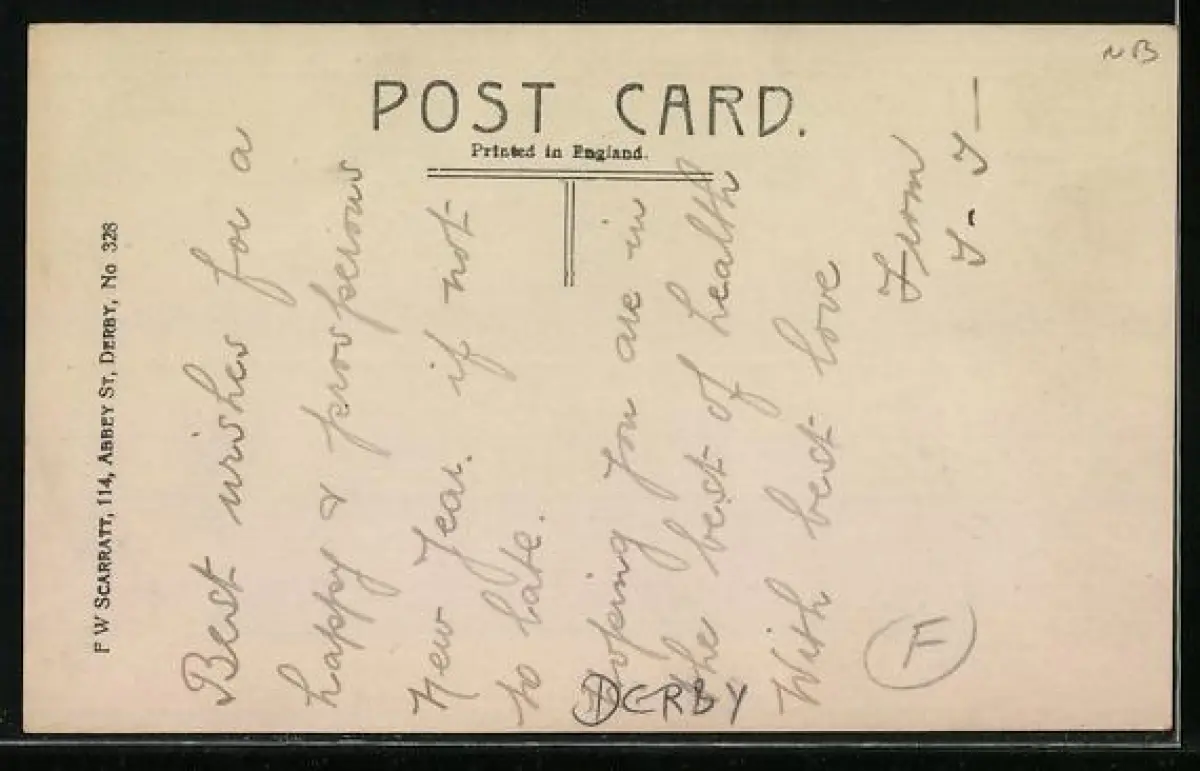 POST CARD.
Printed in England.
F W SCARRATT, 114, ABBEY ST, DERBY, No 328
Best wishes for a
happy & prosperious
New Year. if not
to late.
Hoping you are in
the best of health
With best love
From
DERBY
NB